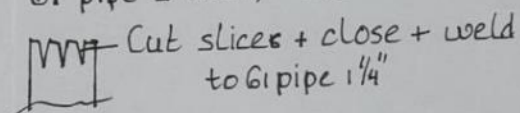 GI pipe
Cut slices + close + weld
to GI pipe 1¼"